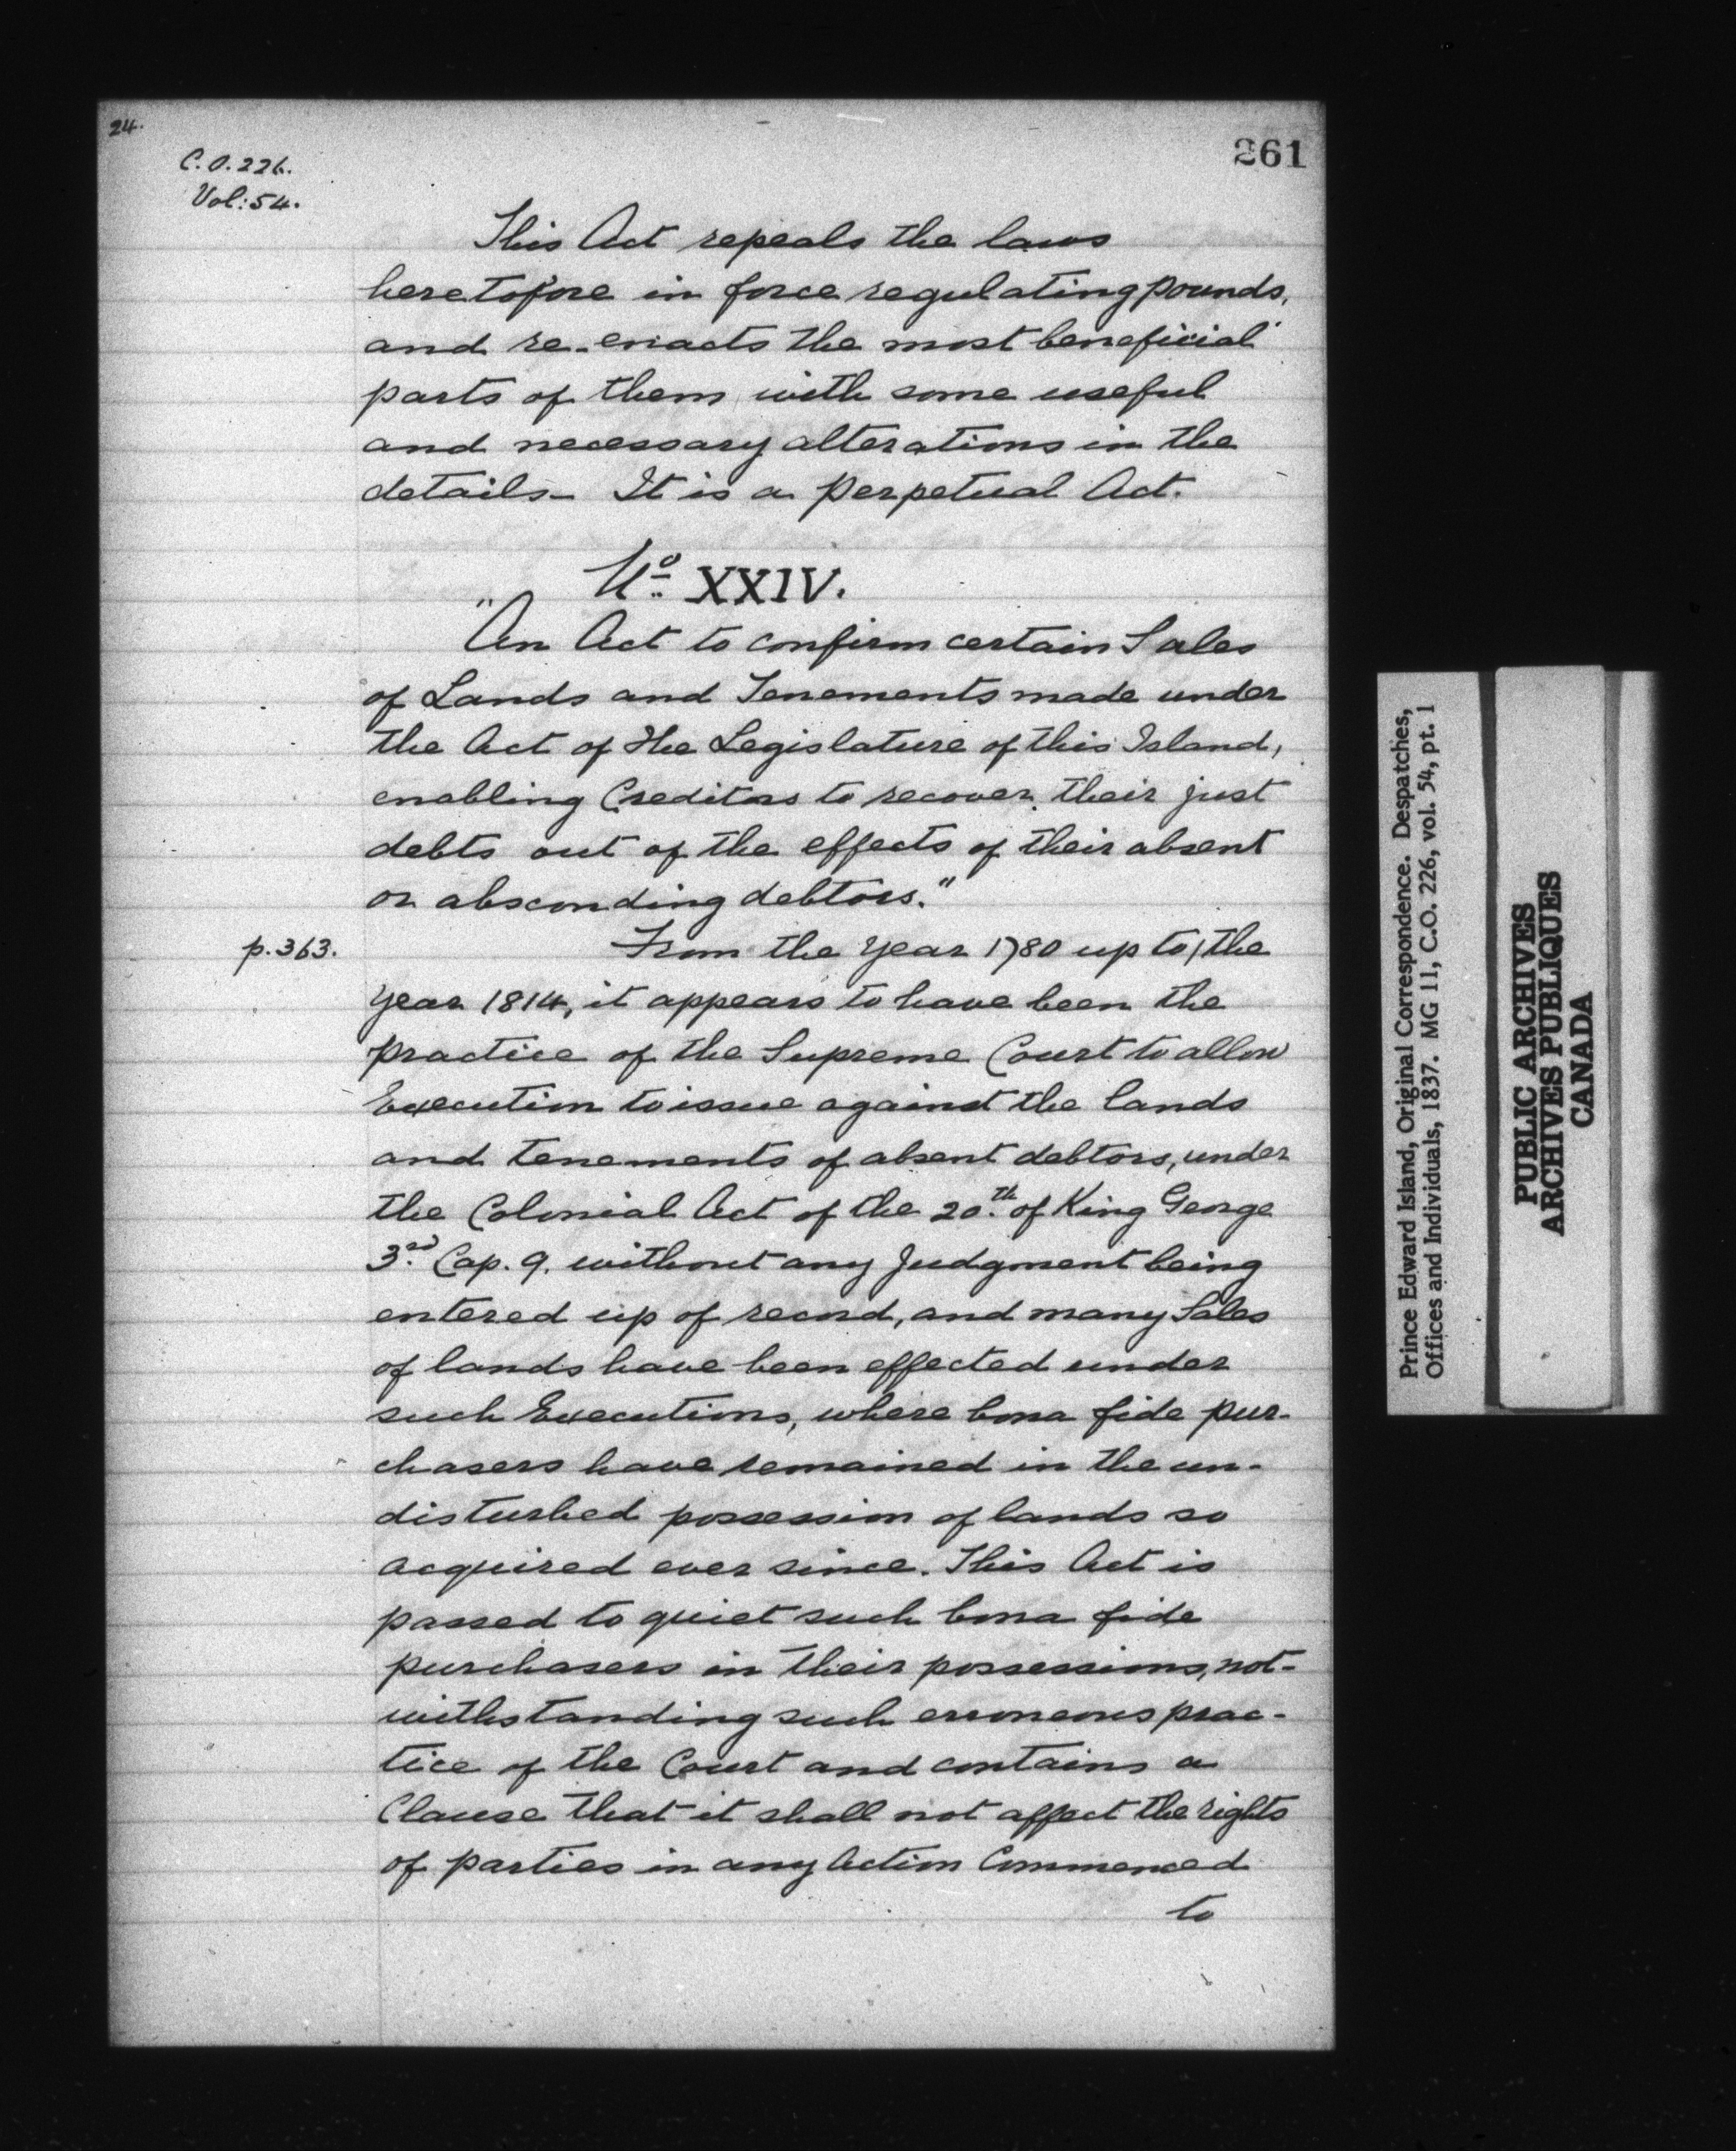 24.
C.O.226.
Vol:54.
261
This Act repeals the laws
heretofore in force regulating pounds,
and re-enacts the most beneficial
parts of them with some useful
and necessary alterations in the
details- It is a perpetual Act.
No. XXIV.
"An Act to confirm certain Sales
of Lands and Tenements made under
the Act of the Legislature of this Island,
enabling Creditors to recover their just
debts out of the effects of their absent
or absconding debtors."
p.363.
From the year 1780 up to the
year 1814, it appears to have been the
practice of the Supreme Court to allow
Execution to issue against the lands
and tenements of absent debtors, under
the Colonial Act of the 20.th of King George
3.rd Cap. 9. without any Judgment being
entered up of record, and many Sales
of lands have been effected under
such Executions, where bona fide pur-
chasers have remained in the un-
disturbed possession of lands so
acquired ever since. This Act is
passed to quiet such bona fide
purchasers in their possessions, not-
withstanding such erroneous prac-
tice of the Court and contains a
Clause that it shall not affect the rights
of parties in any Action Commenced
to
Prince Edward Island, Original Correspondence. Despatches,
Offices and Individuals, 1837. MG 11, C.O. 226, vol. 54, pt. 1
PUBLIC ARCHIVES
ARCHIVES PUBLIQUES
CANADA